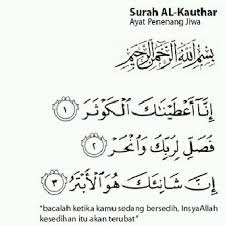 Surah AL-Kauthar
Ayat Penenang Jiwa
بِسْمِ اللَّهِ الرَّحْمَٰنِ الرَّحِيمِ
إِنَّا أَعْطَيْنَاكَ الْكَوْثَرَ ١
فَصَلِّ لِرَبِّكَ وَانْحَرْ ٢
إِنَّ شَانِئَكَ هُوَ الْأَبْتَرُ ٣
"bacalah ketika kamu sedang bersedih, InsyaAllah
kesedihan itu akan terubat"